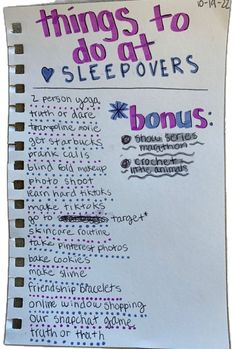 10-14-22
things to
do at
♥ SLEEPOVERS
2 person yoga
truth or dare
trampoline movie
get starbucks
prank calls
blind fold makeup
photo shoot
learn hard tiktoks
make tiktoks
go to target*
skincare routine
take pinterest photos
bake cookies
make slime
friendship bracelets
online window shopping
our snapchat game
truth or truth
*bonus:
show series
marathon
crochet
little animals